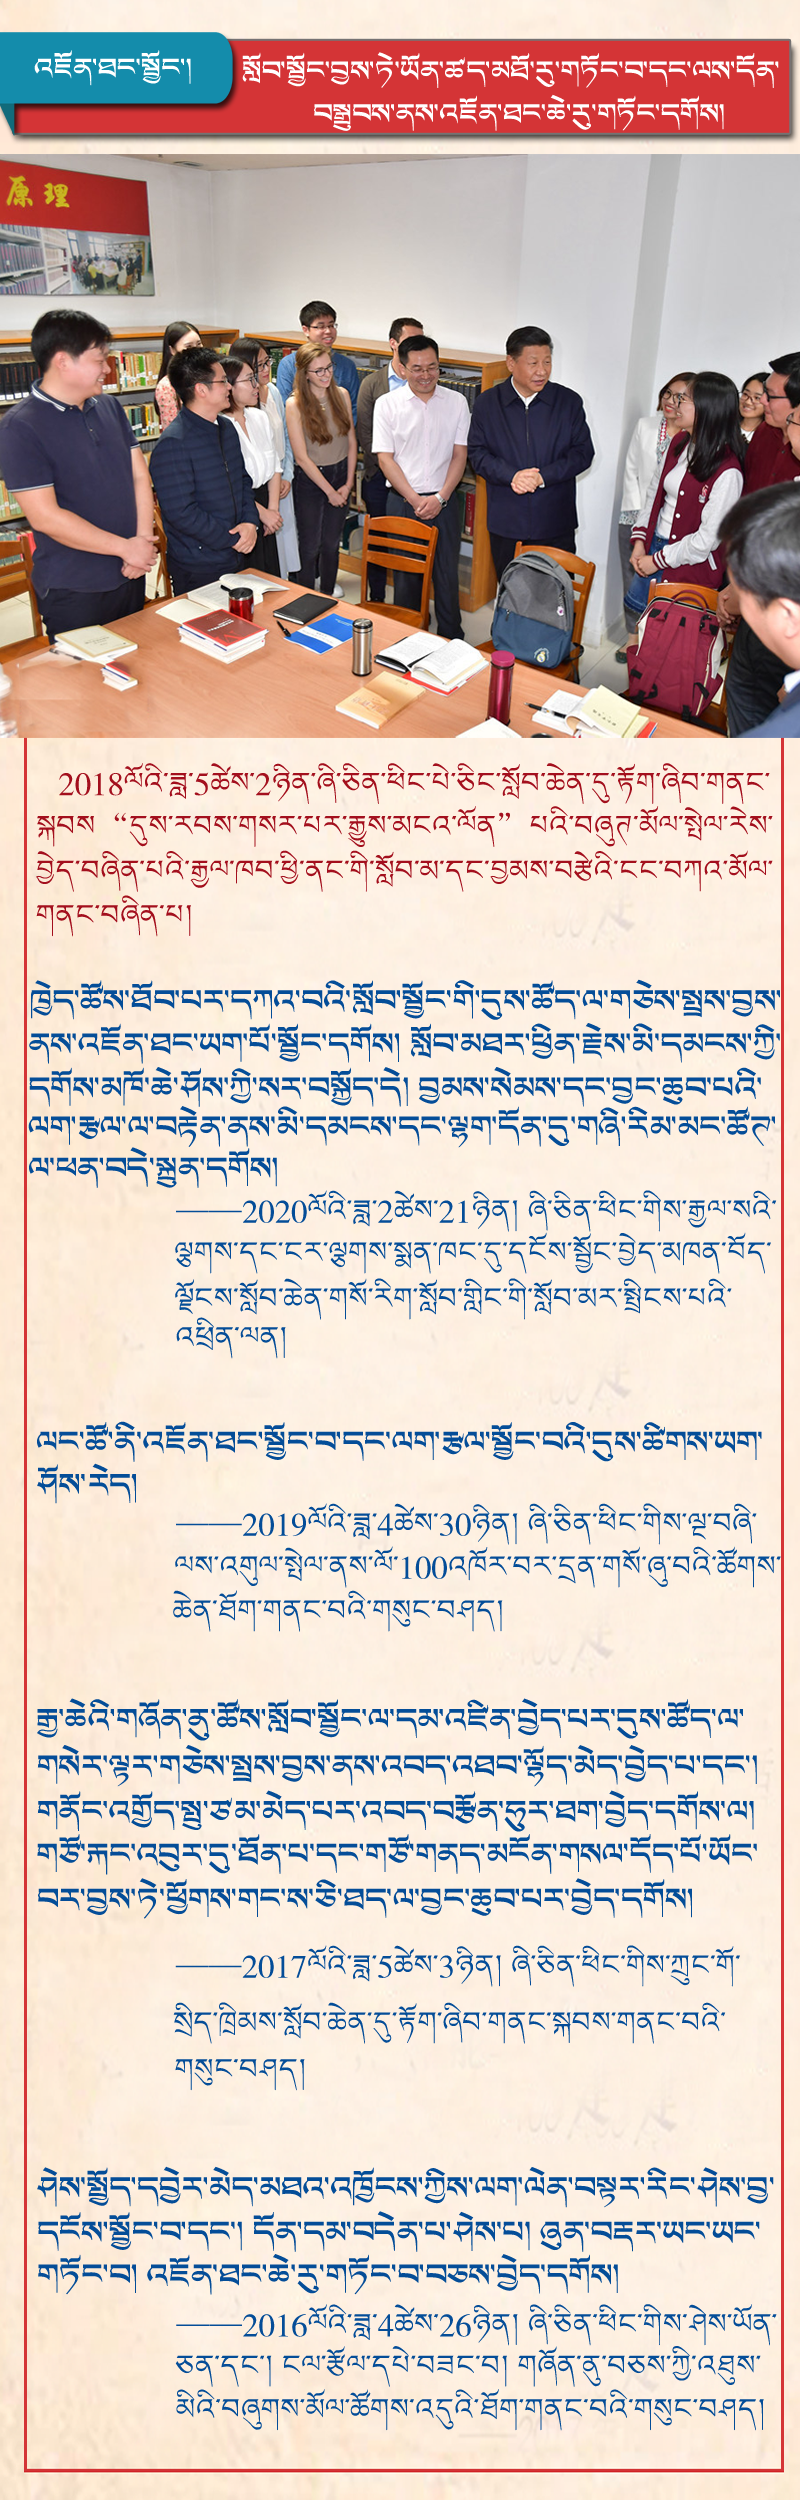 འཇོན་ཐང་སྦྱོང་།
སློབ་སྦྱོང་བྱས་ཏེ་ཡོན་ཚད་མཐོ་རུ་གཏོང་བ་དང་ལས་དོན་
བསྒྲུབས་ནས་འཇོན་ཐང་ཆེ་རུ་གཏོང་དགོས།
原理
2018ལོའི་ཟླ་5ཚེས་2ཉིན་ཞི་ཅིན་ཕིང་པེ་ཅིང་སློབ་ཆེན་དུ་རྟོག་ཞིབ་གནང་
སྐབས “དུས་རབས་གསར་པར་རྒྱུས་མངའ་ལོན” པའི་བཞུཊ་མོལ་སྤེལ་རེས་
བྱེད་བཞིན་པའི་རྒྱལ་ཁབ་ཕྱི་ནང་གི་སློབ་མ་དང་བྱམས་བརྩེའི་ངང་བཀའ་མོལ་
གནང་བཞིན་པ།
ཁྱེད་ཚོས་ཐོབ་པར་དཀའ་བའི་སློབ་སྦྱོང་གི་དུས་ཚོད་ལ་གཅེས་སྤྲས་བྱས་
ནས་འཇོན་ཐང་ཡག་པོ་སྦྱོང་དགོས། སློབ་མཐར་ཕྱིན་རྗེས་མི་དམངས་ཀྱི་
དགོས་མཁོ་ཆེ་ཤོས་ཀྱི་སར་བསྐྱོད་དེ། བྱམས་སེམས་དང་བྱང་ཆུབ་པའི་
ལག་རྩལ་ལ་བརྟེན་ནས་མི་དམངས་དང་ལྷག་དོན་དུ་གཞི་རིམ་མང་ཚོཊ་
ལ་ཕན་བདེ་སྐྲུན་དགོས།
——2020ལོའི་ཟླ་2ཚེས་21ཉིན། ཞི་ཅིན་ཕིང་གིས་རྒྱལ་སའི་
ལྕགས་དང་ངར་ལྕགས་སྨན་ཁང་དུ་དངོས་སྦྱོང་བྱེད་མཁན་བོད་
ལྗོངས་སློབ་ཆེན་གསོ་རིག་སློབ་གླིང་གི་སློབ་མར་སྤྲིངས་པའི་
འཕྲིན་ལན།
ལང་ཚོ་ནི་འཇོན་ཐང་སྦྱོང་བ་དང་ལག་རྩལ་སྦྱོང་བའི་དུས་ཚིགས་ཡག་
ཤོས་རེད།
——2019ལོའི་ཟླ་4ཚེས་30ཉིན། ཞི་ཅིན་ཕིང་གིས་ལྔ་བཞི་
ལས་འགུལ་སྤེལ་ནས་ལོ་100འཁོར་བར་དྲན་གསོ་ཞུ་བའི་ཚོགས་
ཆེན་ཐོག་གནང་བའི་གསུང་བཤད།
རྒྱ་ཆེའི་གཞོན་ནུ་ཚོས་སློབ་སྦྱོང་ལ་དམ་འཛིན་བྱེད་པར་དུས་ཚོད་ལ་
གསེར་ལྟར་གཅེས་སྤྲས་བྱས་ནས་འབད་འཐབ་ལྷོད་མེད་བྱེད་པ་དང་།
གནོང་འགྱོད་སྤུ་ཙམ་མེད་པར་འབད་བརྩོན་ཧུར་ཐག་བྱེད་དགོས་ལ།
གཙོ་རྐང་འབུར་དུ་ཐོན་པ་དང་གཙོ་གནད་མངོན་གསལ་དོད་པོ་ཡོང་
བར་བྱས་ཏེ་ཕྱོགས་གང་ས་ཅི་ཐད་ལ་བྱང་ཆུབ་པར་བྱེད་དགོས།
——2017ལོའི་ཟླ་5ཚེས་3ཉིན། ཞི་ཅིན་ཕིང་གིས་ཀྲུང་གོ་
སྲིད་ཁྲིམས་སློབ་ཆེན་དུ་རྟོག་ཞིབ་གནང་སྐབས་གནང་བའི་
གསུང་བཤད།
ཤེས་སྤྱོད་དབྱེར་མེད་མཐའ་འཁྱོངས་ཀྱིས་ལག་ལེན་བསྟར་རིང་ཤེས་བྱ་
དངོས་སྦྱོང་བ་དང་། དོན་དམ་བདེན་པ་ཤེས་པ། ཞུན་བརྡར་ཡང་ཡང་
གཏོང་བ། འཇོན་ཐང་ཆེ་རུ་གཏོང་བ་བཅས་བྱེད་དགོས།
——2016ལོའི་ཟླ་4ཚེས་26ཉིན། ཞི་ཅིན་ཕིང་གིས་ཤེས་ཡོན་
ཅན་དང་། ངལ་རྩོལ་དཔེ་བཟང་བ། གཞོན་ནུ་བཅས་ཀྱི་འཐུས་
མིའི་བཞུགས་མོལ་ཚོགས་འདུའི་ཐོག་གནང་བའི་གསུང་བཤད།